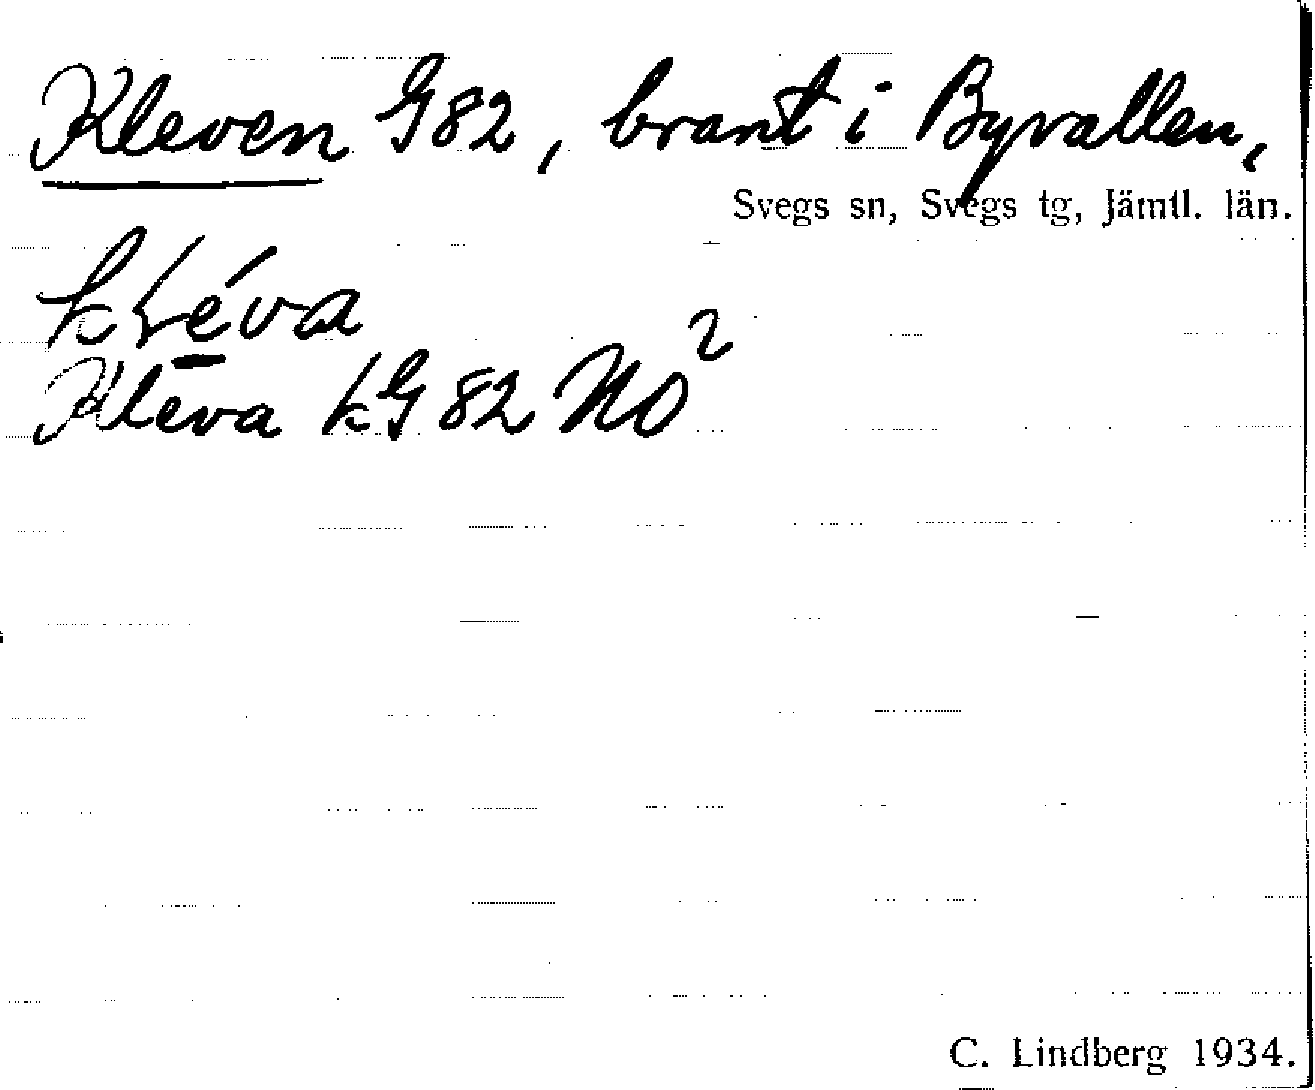 Kleven G82, brant i Byvallen,
Svegs sn, Svegs tg, Jämtl. län.
kléva
Kleva kG 82 NO²
C. Lindberg 1934.